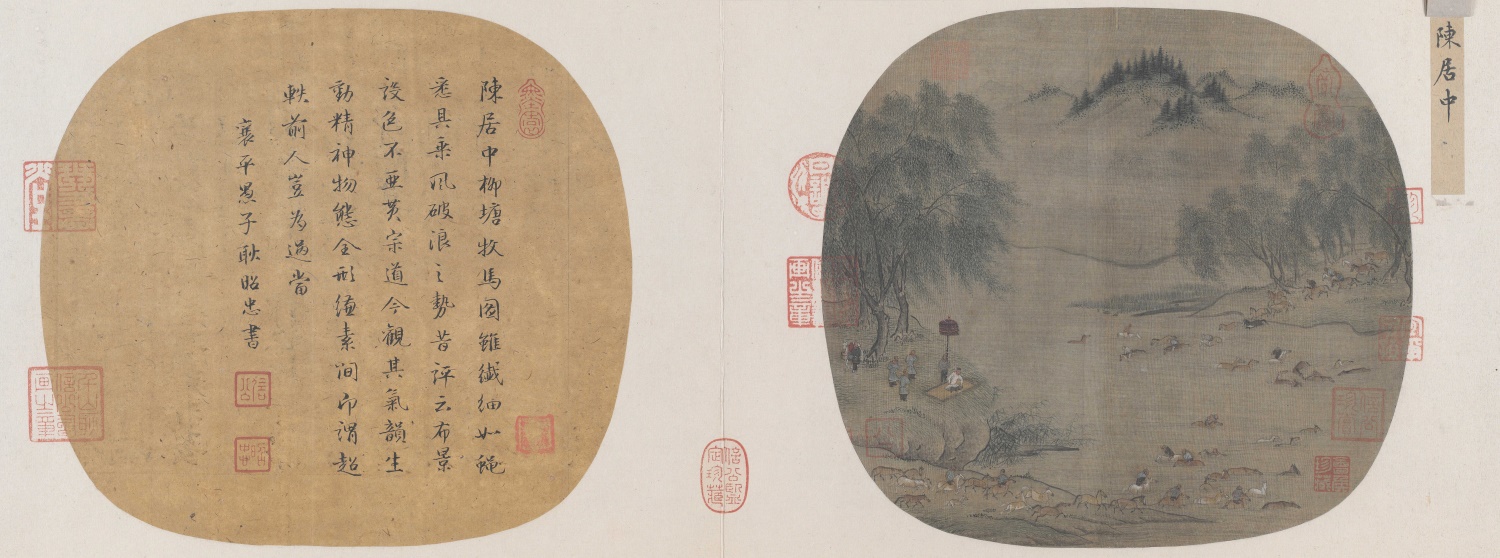 陳居中
陳居中柳塘牧馬圖雖纖細如蠅
悉具乘風破浪之勢昔評云布景
設色不亞黃宗道今觀其氣韻生
動精神物態全形縑素間即謂超
軼前人豈為過當
襄平愚子耿昭忠書
信公
信公鑒定珍藏